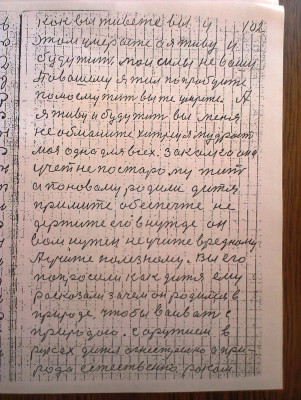 кон вы живете вы и 102
этом умираете а я живу и
буду жить мои силы не ваши
По вашему я жил попробуйте
по моему жит вы не умрете. А
я живу и буду жит вы меня
не обманите хитрия мудраст
моя одна для всех. закалка она
учет не по старому жит
а по новому родили дитя
примите обеспечте не
держите его в нужде он
вам нужен не учите вредному
А учите полезному. Вы его
попросили как дитя ему
расказали зачем он родился в
природе, чтобы ваиват с
природаю. с аружием в
руках дитя огнестрелно а при-
рода естествено раком.